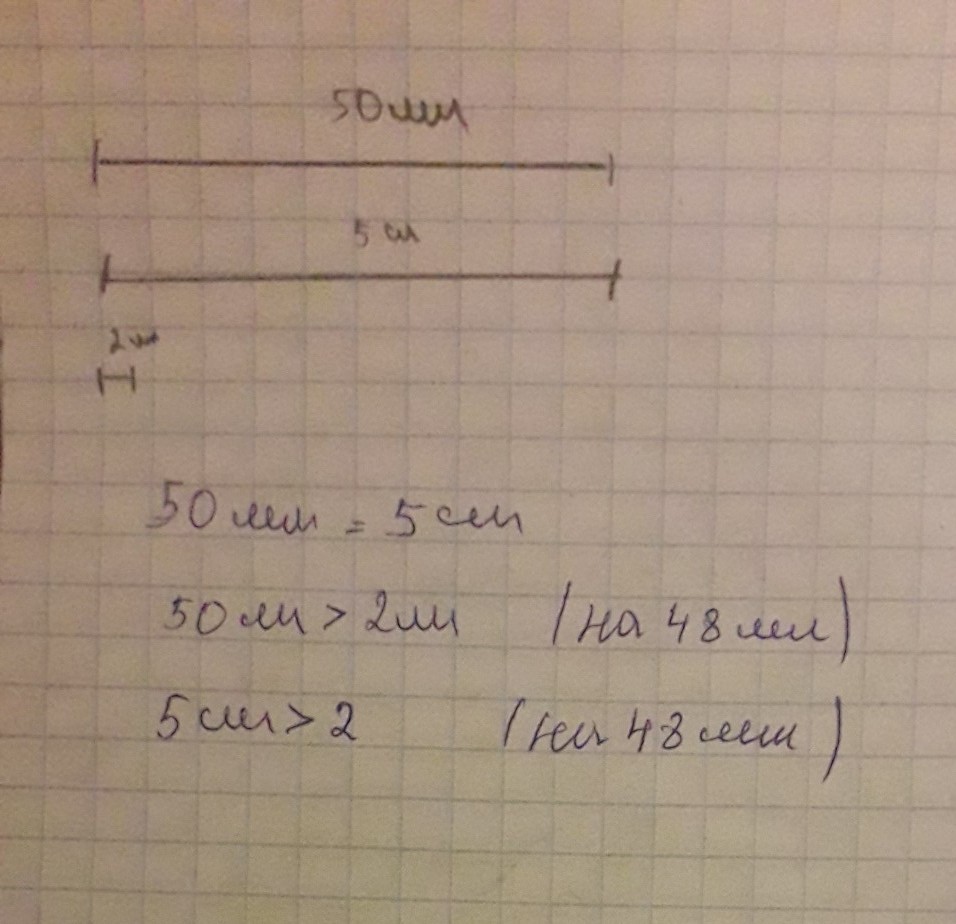 50 мм
5 см
2 мм
50 мм = 5 см
50 мм > 2 мм (на 48 мм)
5 см > 2 (на 48 мм)